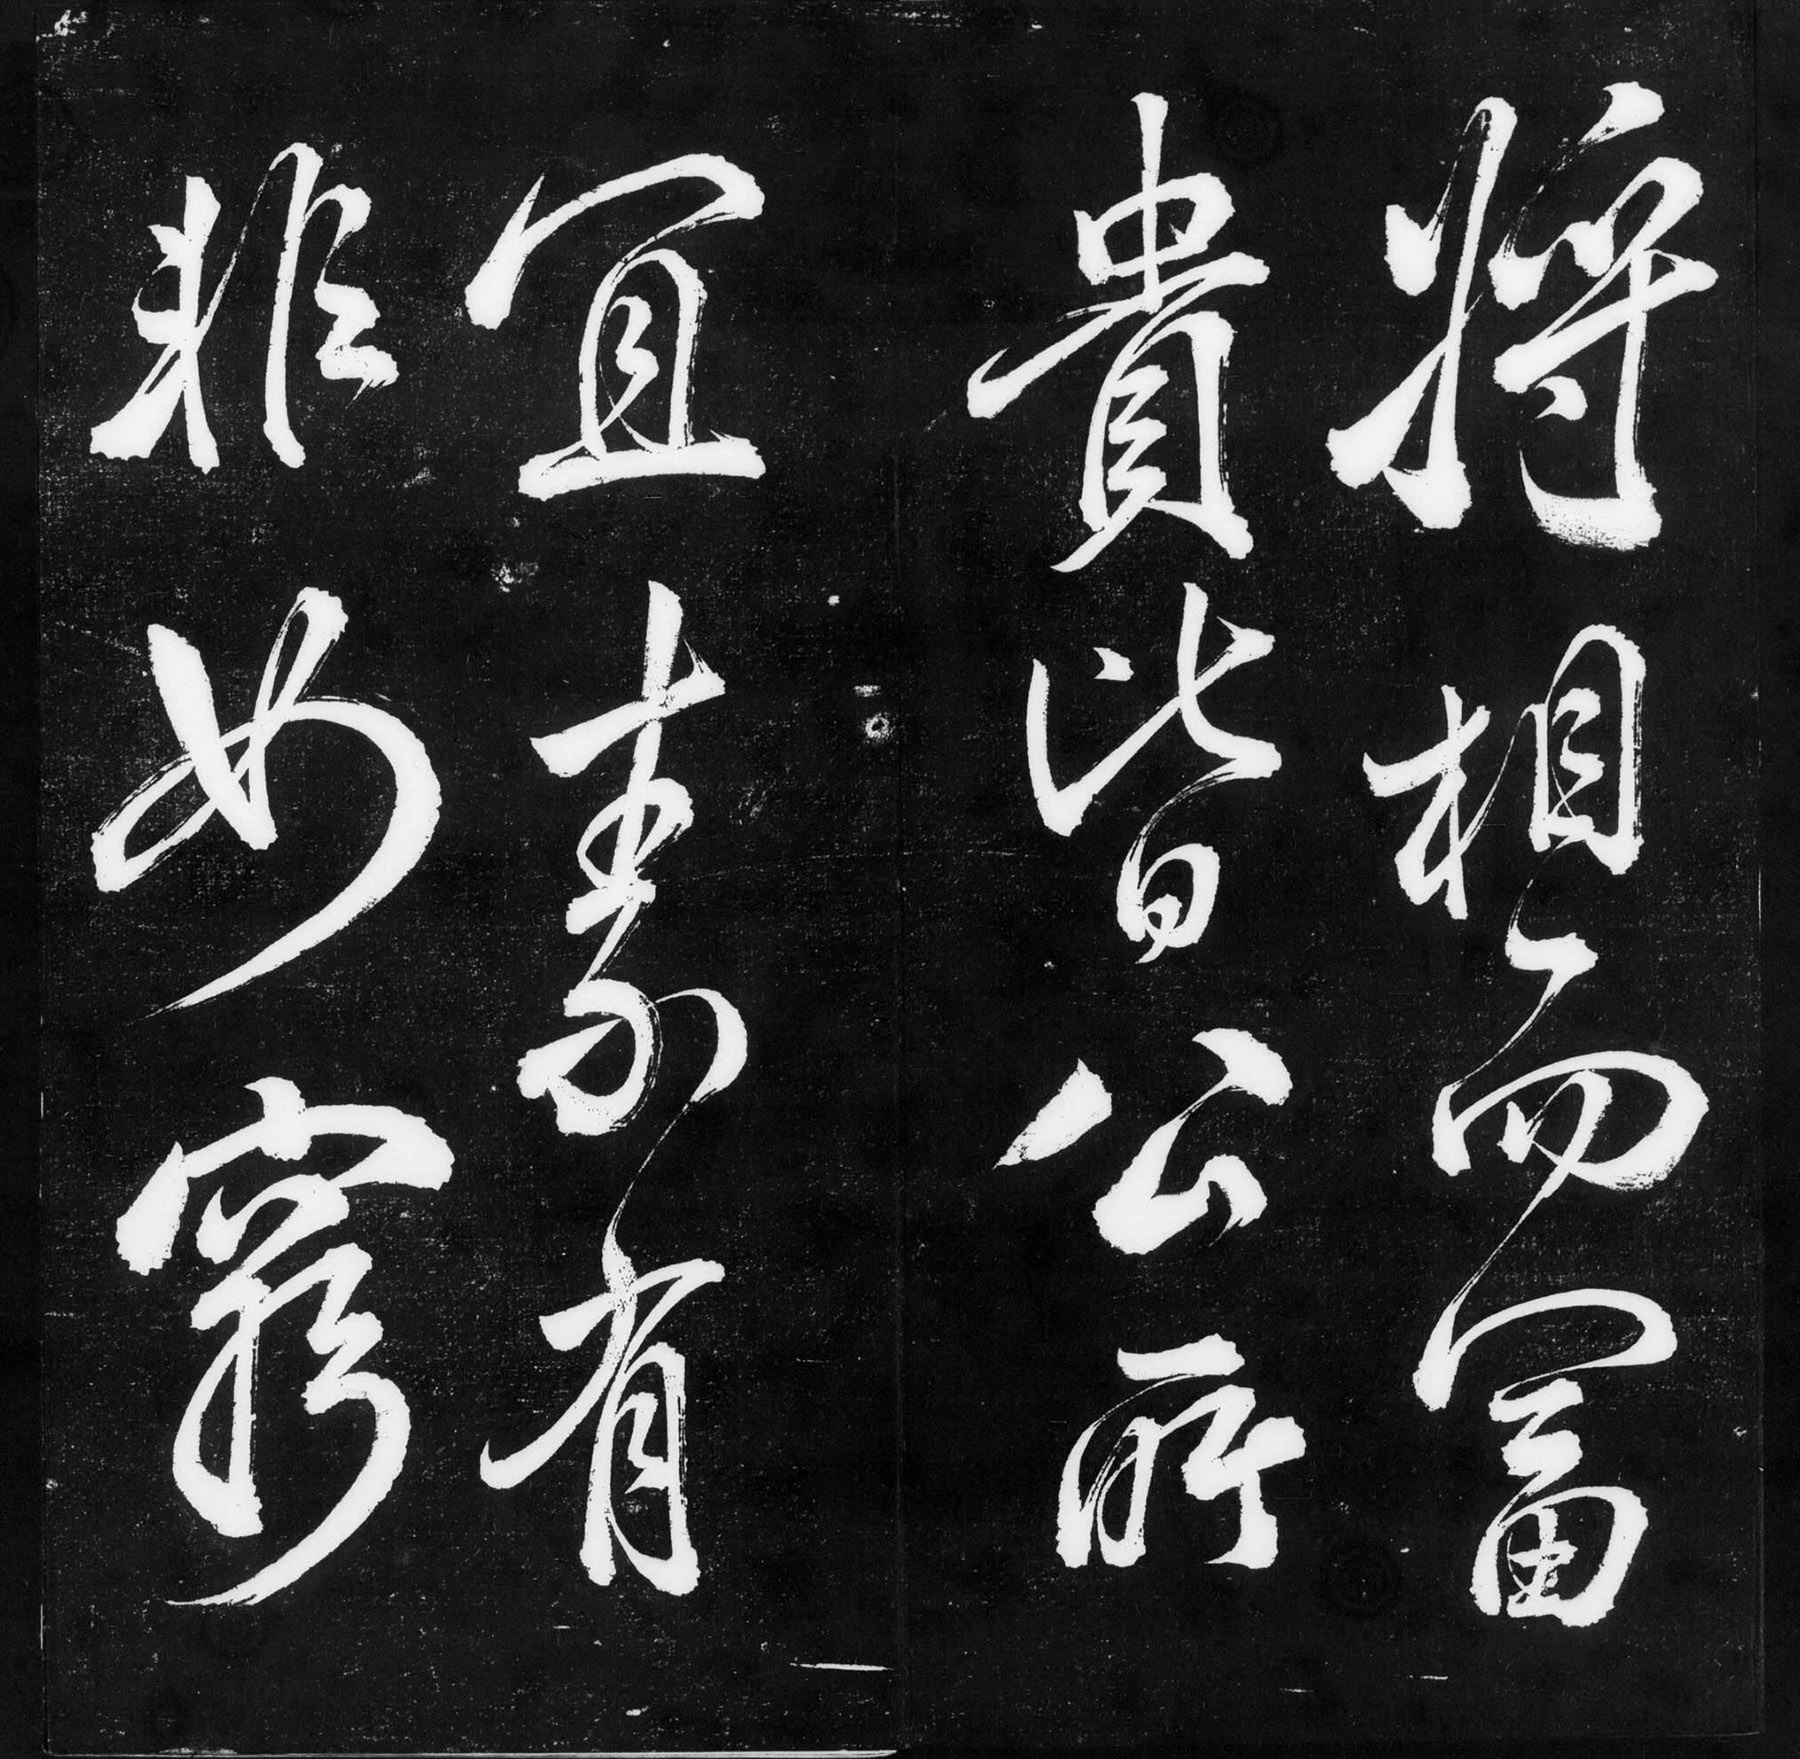 將相而富
貴皆公所
宜素有
非如窮